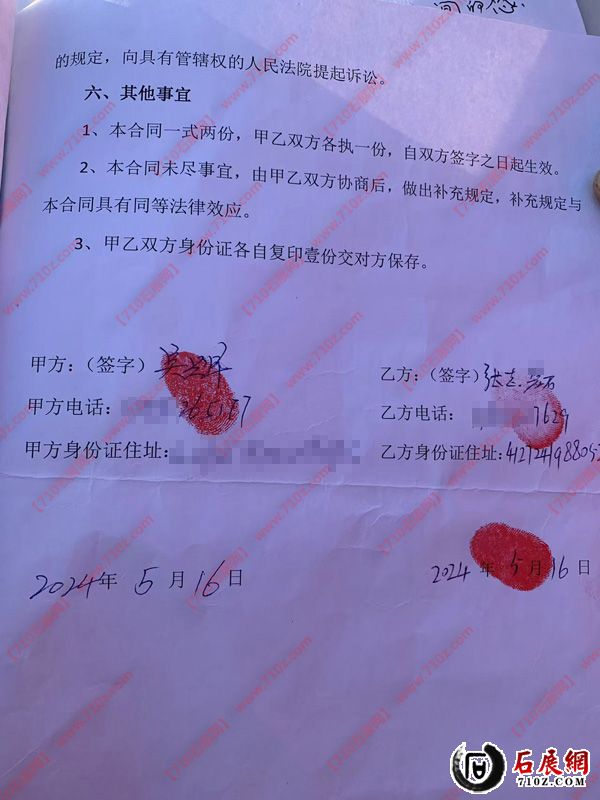 的规定，向具有管辖权的人民法院提起诉讼。
六、其他事宜
1、本合同一式两份，甲乙双方各执一份，自双方签字之日起生效。
2、本合同未尽事宜，由甲乙双方协商后，做出补充规定，补充规定与
本合同具有同等法律效应。
3、甲乙双方身份证各自复印壹份交对方保存。
甲方：（签字）
乙方：（签字）张
甲方电话：
乙方电话： 7629
甲方身份证住址：
乙方身份证住址:
2024年 5 月 16 日
2024 年 5 月 16 日
【710石展网】www.710z.com
石展網
710Z.COM